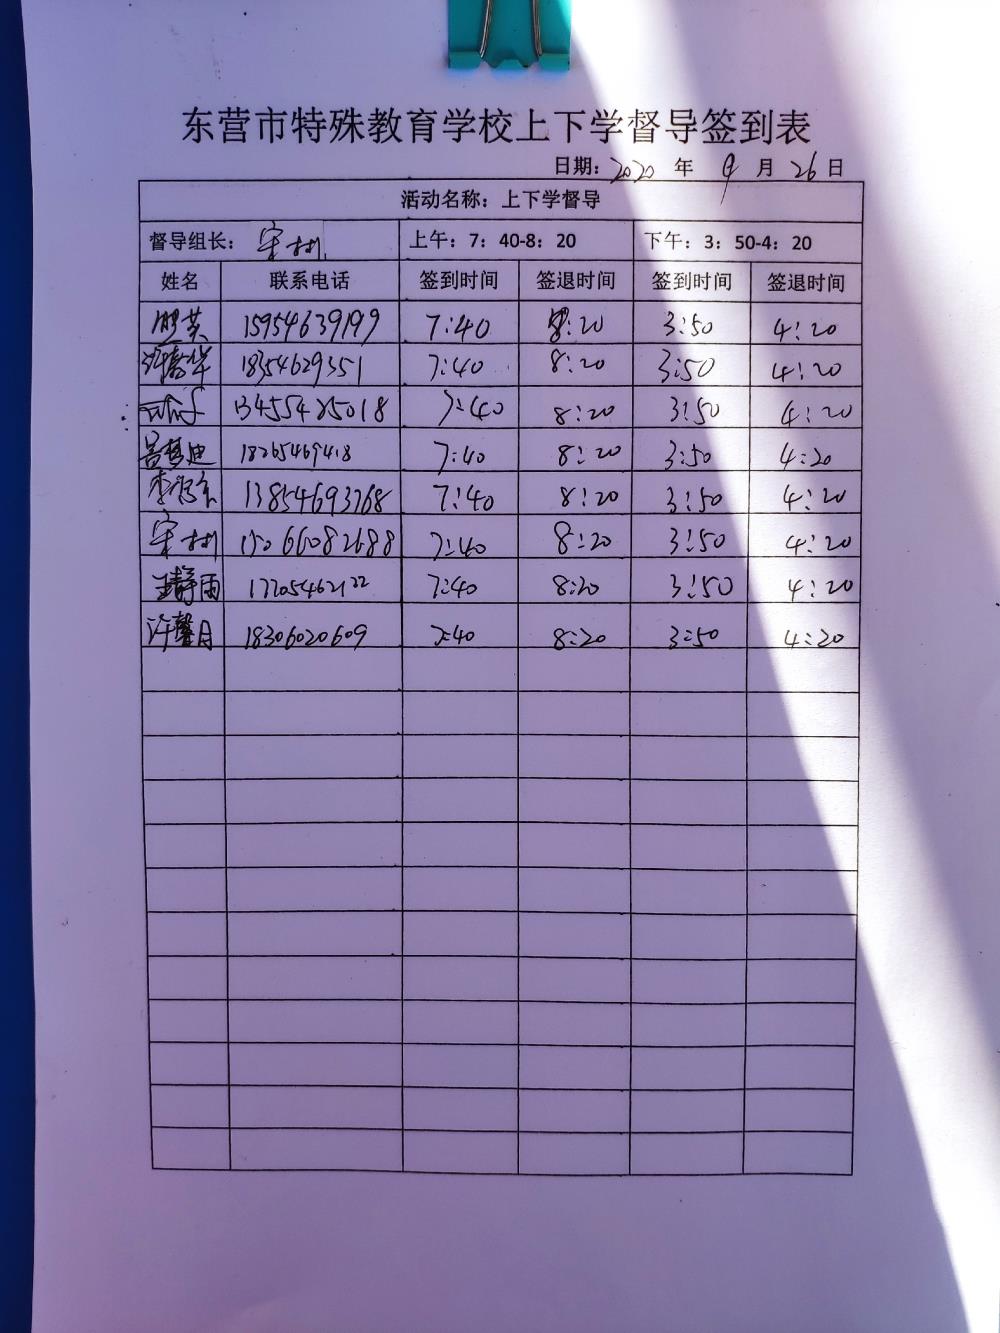 东营市特殊教育学校上下学督导签到表
日期：2020 年 9 月 26 日
活动名称：上下学督导
督导组长：宋彬 上午：7：40-8：20 下午：3：50-4：20
姓名 联系电话 签到时间 签退时间 签到时间 签退时间
15954639199 7:40 8:20 3:50 4:20
18354629351 7:40 8:20 3:50 4:20
13455425018 7:40 8:20 3:50 4:20
吕梦迪 18265469418 7:40 8:20 3:50 4:20
13854693768 7:40 8:20 3:50 4:20
宋彬 15066082688 7:40 8:20 3:50 4:20
王静雨 17705462122 7:40 8:20 3:50 4:20
许馨月 18306020609 7:40 8:20 3:50 4:20